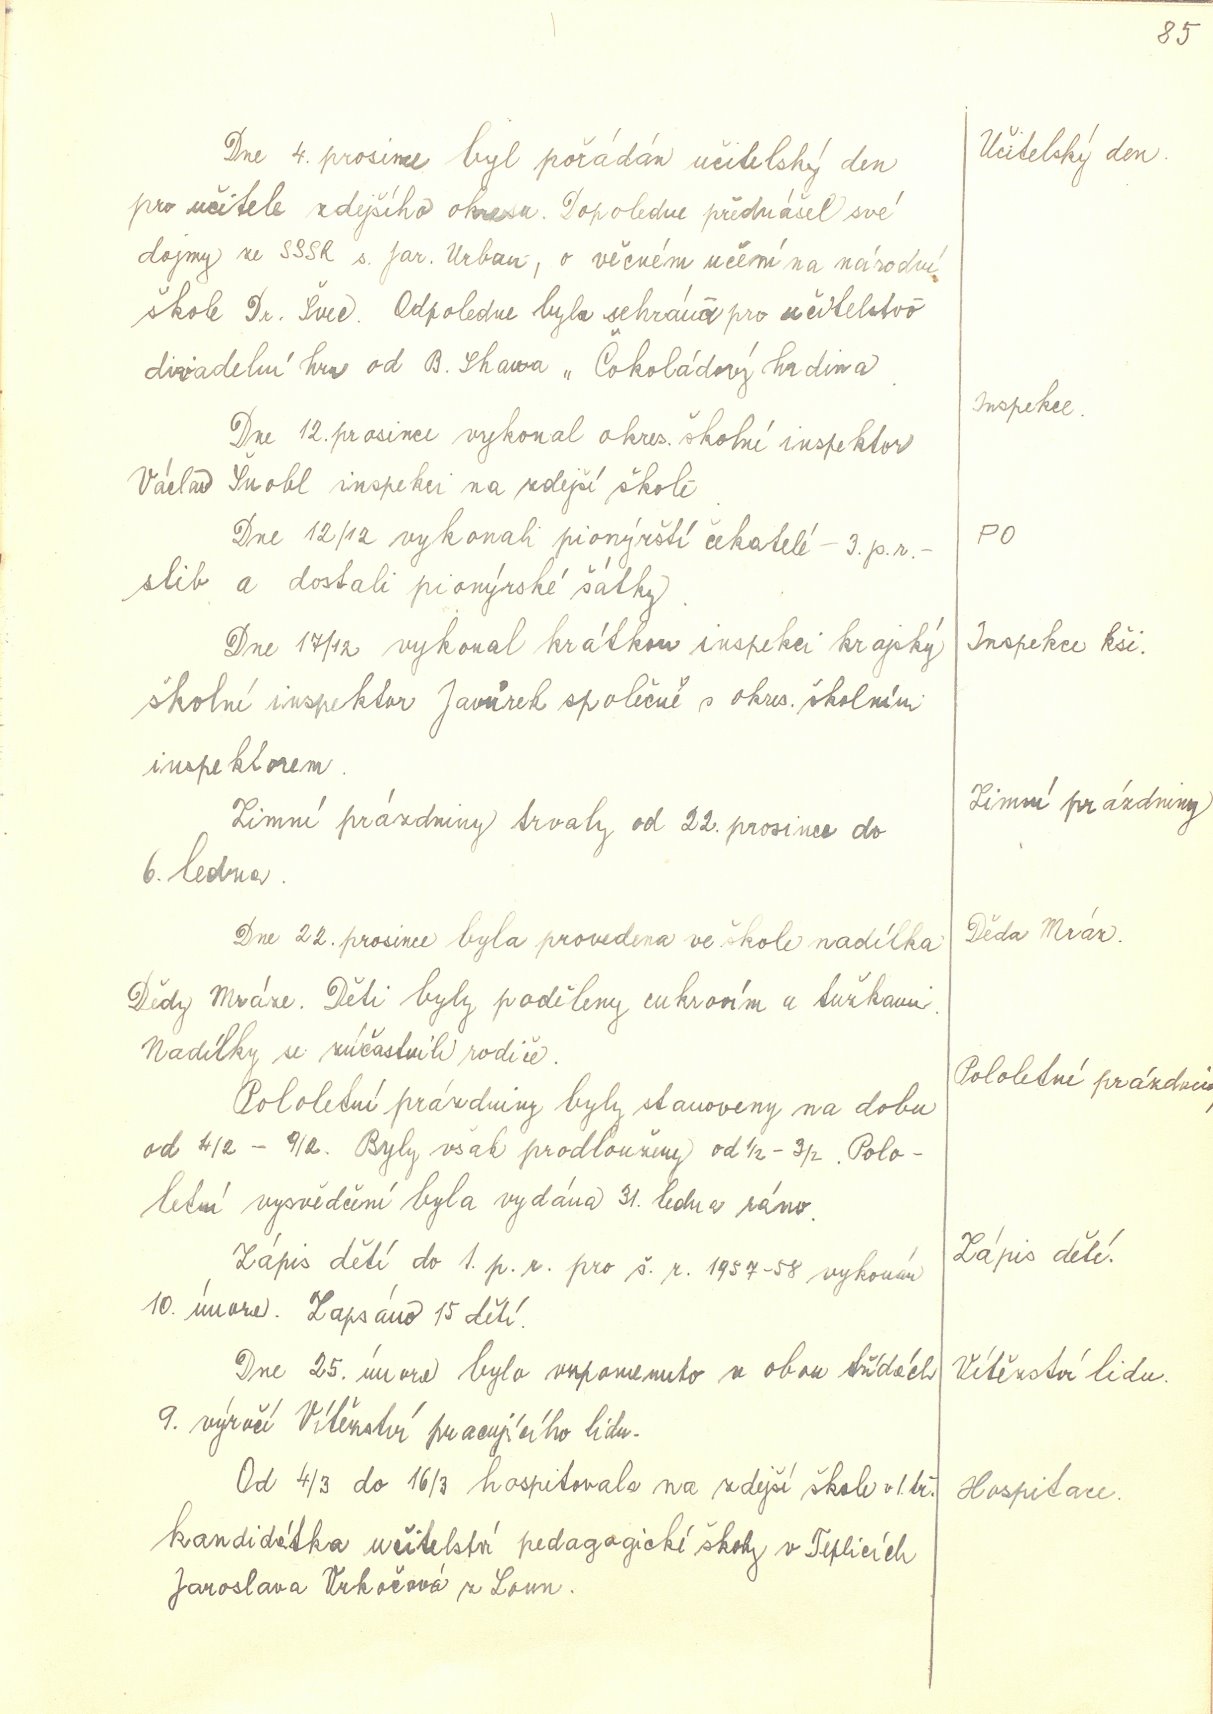 85
Dne 4. prosince byl pořádán učitelský den
Učitelský den.
pro učitele zdejšího okresu. Dopoledne přednášel své
dojmy ze SSSR s. Jar. Urban, o věcném učení na národní
škole Dr. Švec. Odpoledne byla sehrána pro učitelstvo
divadelní hra od B. Shawa „ Čokoládový hrdina
Inspekce.
Dne 12. prosince vykonal okres. školní inspektor
Václav Šnobl inspekci na zdejší škole
Dne 12/12 vykonali pionýrští čekatelé – 3. p. r. –
PO
slib a dostali pionýrské šátky.
Dne 17/12 vykonal krátkou inspekci krajský
Inspekce kši.
školní inspektor Javůrek společně s okres. školním
inspektorem.
Zimní prázdniny trvaly od 22. prosince do
Zimní prázdniny
6. ledna.
Dne 22. prosince byla provedena ve škole nadílka
Děda Mráz.
Dědy Mráze. Děti byly poděleny cukrovím a tužkami.
Nadílky se zúčastnili rodiče.
Pololetní prázdniny byly stanoveny na dobu
Pololetní prázdniny
od 4/2 – 9/2. Byly však prodlouženy od 1/2 – 3/2. Polo-
letní vysvědčení byla vydána 31. ledna ráno.
Zápis dětí do 1. p. r. pro š. r. 1957-58 vykonán
Zápis dětí.
10. února. Zapsáno 15 dětí.
Dne 25. února bylo vzpomenuto v obou třídách
Vítězství lidu.
9. výročí Vítězství pracujícího lidu.
Od 4/3 do 16/3 hospitovala na zdejší škole v 1. tř.
Hospitace.
kandidátka učitelství pedagogické školy v Teplicích
Jaroslava Vrkočová z Loun.